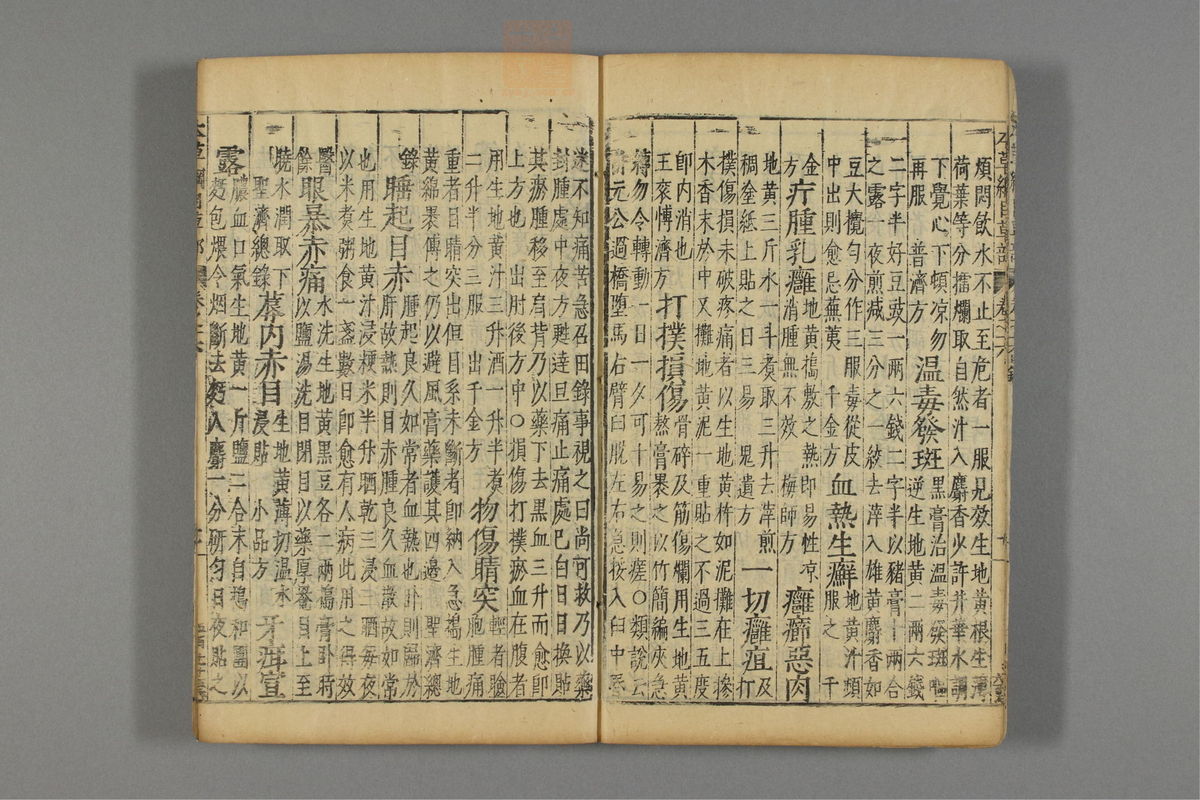 煩悶飲水不止至危者一服見效生地黃根生薄
荷葉等分擂爛取自然汁入麝香少許井華水調
下覺心下頓凉勿
再服 普濟方 温毒發斑 黑膏治温毒發斑嘔逆生地黃二兩六錢
二字半好豆豉一兩六錢二字半以豬膏十兩合
之露一夜煎減三分之一絞去滓入雄黃麝香如
豆大攪勻分作三服毒從皮
中出則愈忌蕪荑 千金方 血熱生癬 地黃汁頻服之 千
金方 疔腫乳癰 地黃搗敷之熱即易性凉消腫無不效 梅師方 癰癤惡肉
地黃三斤水一斗煮取三升去滓煎
稠塗紙上貼之日三易 鬼遺方 一切癰疽 及打
撲傷損未破疼痛者以生地黃杵如泥攤在上摻
木香末於中又攤地黃泥一重貼之不過三五度
即内消也
王衮愽濟方 打撲損傷 骨碎及筋傷爛用生地黃熬膏裹之以竹簡編夾急
縛勿令轉動一日一夕可十易之則瘥○類說云
元公過橋墮馬右臂臼脫左右急挼入臼中昏
迷不知痛苦急召田錄事視之曰尚可救乃以藥
封腫處中夜方甦達旦痛止痛處已白日日換貼
其瘀腫移至肩背乃以藥下去黑血三升而愈即
上方也 出肘後方中○損傷打撲瘀血在腹者
用生地黃汁三升酒一升半煮
二升半分三服 出千金方 物傷睛突 輕者瞼胞腫痛
重者目睛突出但目系未斷者即納入急搗生地
黃綿裹傅之仍以避風膏藥護其四邊 聖濟總
錄 睡起目赤 腫起良久如常者血熱也卧則血歸於肝故熱則目赤腫良久血散故如常
也用生地黃汁浸粳米半升晒乾三浸三晒每夜
以米煮粥食一盞數日即愈有人病此用之得效
醫餘 眼暴赤痛 水洗生地黃黑豆各二兩搗膏卧時以鹽湯洗目閉目以藥厚罨目上至
曉水潤取下
聖濟總錄 蓐内赤目 生地黃薄切温水浸貼 小品方 牙疳宣
露 膿血口氣生地黃一斤鹽二合末自搗和團以麪包煨令烟斷去麪入麝一分研勻日夜貼之